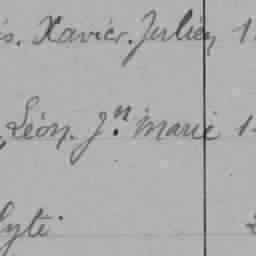 is. Xavier. Julien 1
Léon. Jn. Marie 1
lyte